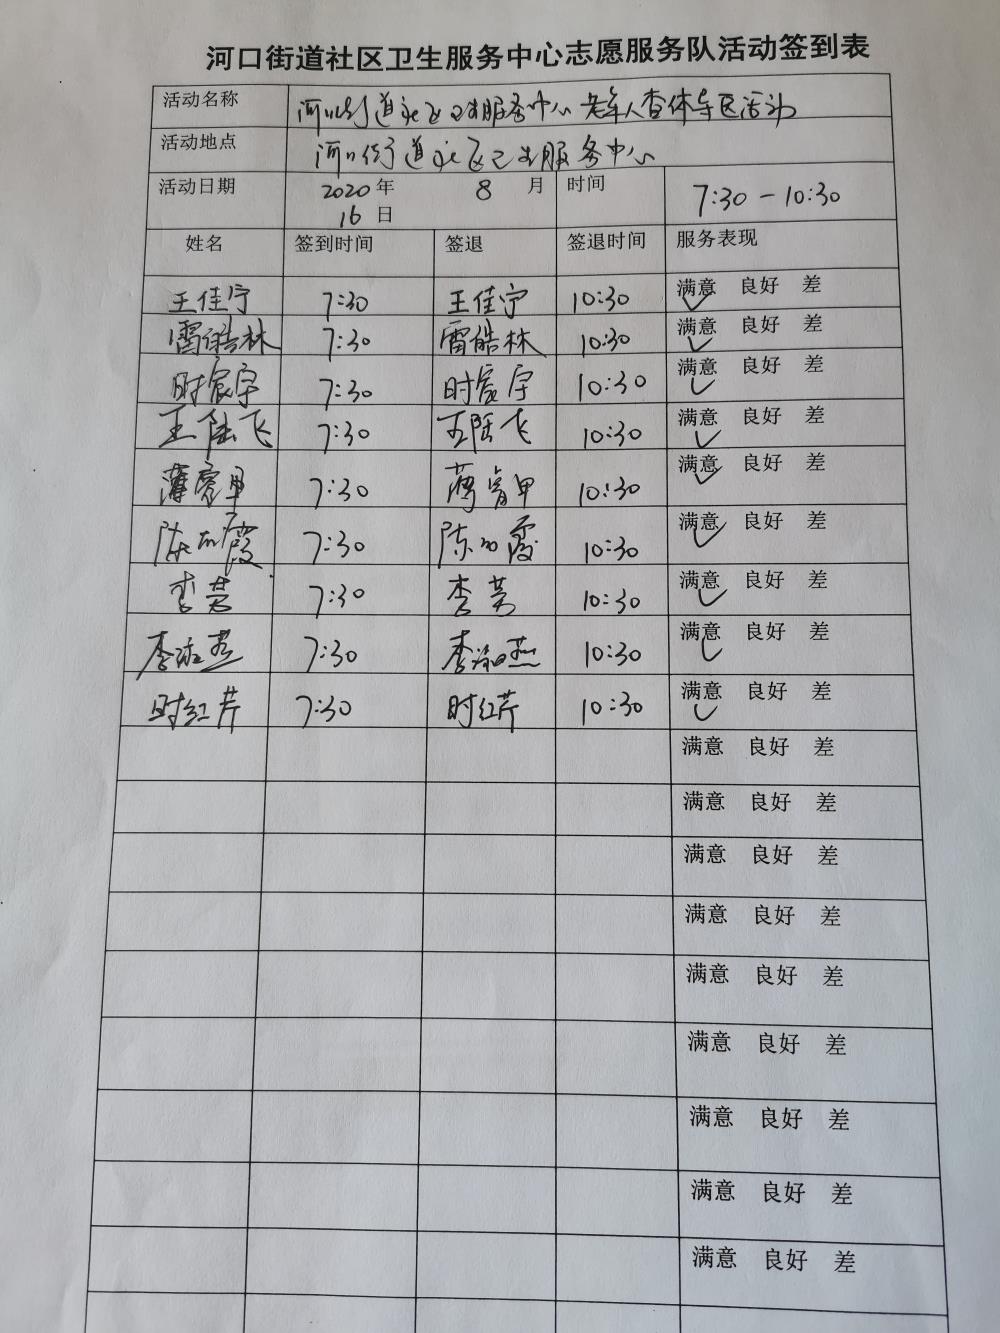 河口街道社区卫生服务中心志愿服务队活动签到表
活动名称 河口街道社区卫生服务中心老年人查体导医活动
活动地点 河口街道社区卫生服务中心
活动日期 2020年 8 月 时间 7:30-10:30
16日
姓名 签到时间 签退 签退时间 服务表现
王佳宁 7:30 王佳宁 10:30 满意 良好 差
雷皓林 7:30 雷皓林 10:30 满意 良好 差
时宸宇 7:30 时宸宇 10:30 满意 良好 差
王陆飞 7:30 王陆飞 10:30 满意 良好 差
7:30 10:30 满意 良好 差
陈 霞 7:30 陈 霞 10:30 满意 良好 差
李 7:30 李 10:30 满意 良好 差
李淑燕 7:30 李淑燕 10:30 满意 良好 差
时红芹 7:30 时红芹 10:30 满意 良好 差
满意 良好 差
满意 良好 差
满意 良好 差
满意 良好 差
满意 良好 差
满意 良好 差
满意 良好 差
满意 良好 差
满意 良好 差